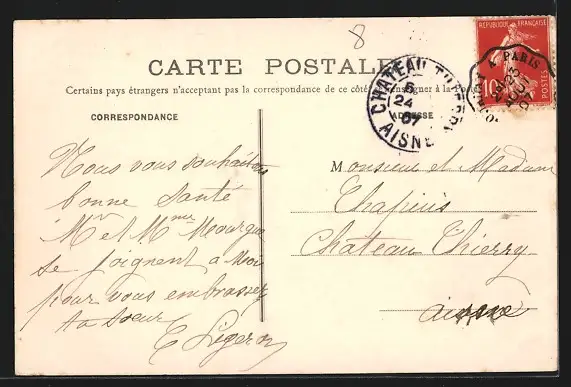 8
REPUBLIQUE FRANÇAISE
10
POSTES
A PARIS
CARTE POSTALE
CHATEAU THIERRY
5
24
07
AISNE
Certains pays étrangers n'acceptent pas la correspondance de ce côté. (Se renseigner à la Poste)
CORRESPONDANCE
ADRESSE
Nous vous souhaitons
bonne santé
Mr et Mme
se joignent à Moi
pour vous embrasser
ta soeur
E Ligeron
Monsieur et Madame
Chapuis
Château Thierry
aisne